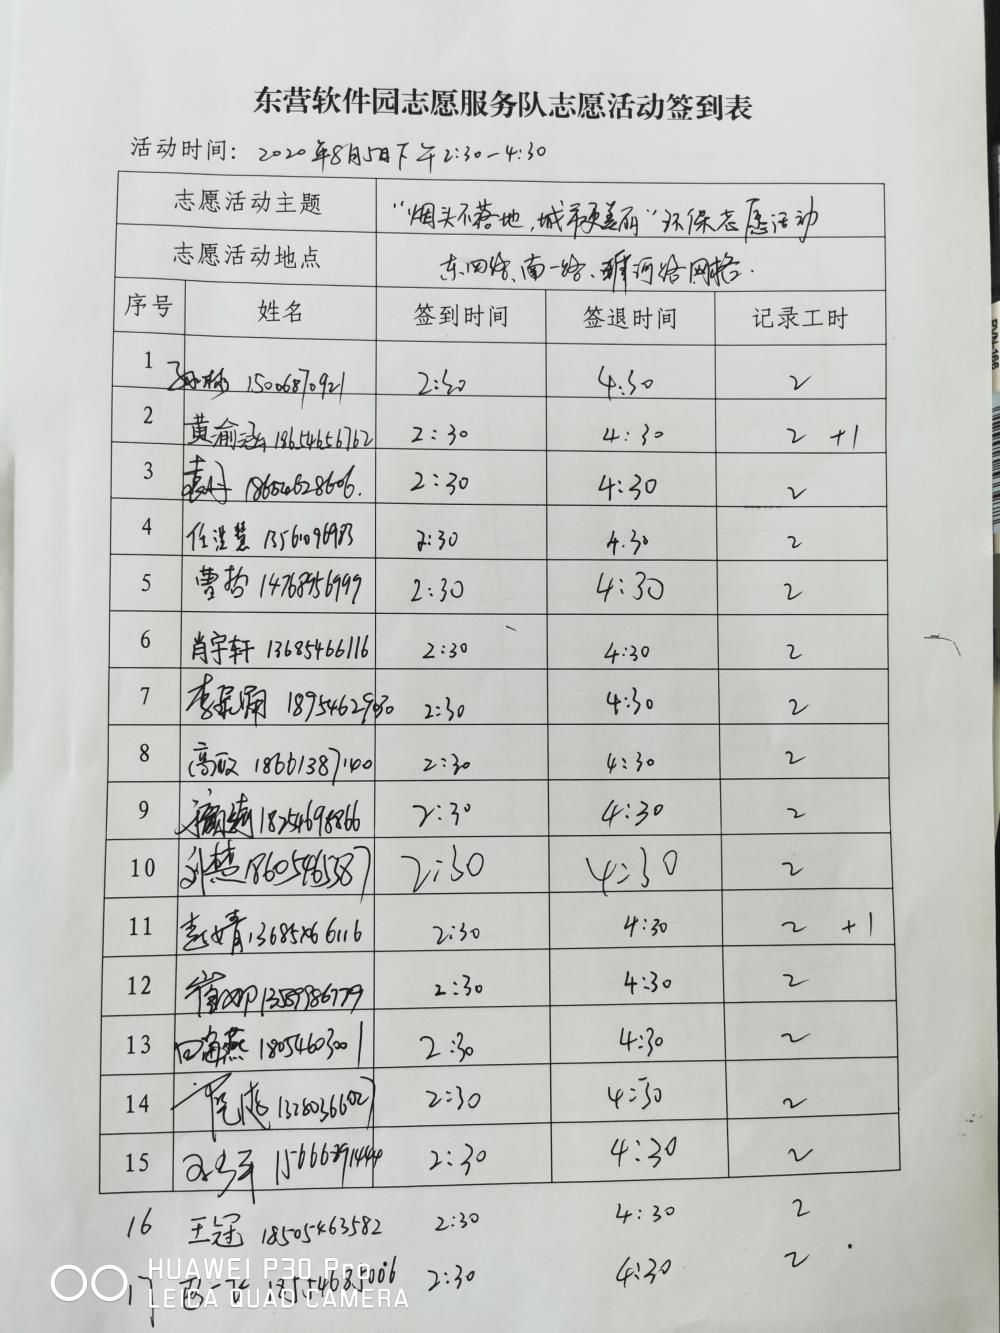 东营软件园志愿服务队志愿活动签到表
活动时间: 2020年8月5日下午2:30-4:30
志愿活动主题 "烟头不落地,城市更美丽"环保志愿活动
志愿活动地点 东四路、南一路、 河路网格.
序号 姓名 签到时间 签退时间 记录工时
1 15006870921 2:30 4:30 2
2 黄渝涵 18654656762 2:30 4:30 2 +1
3 袁丹 18654628606. 2:30 4:30 2
4 任洪慧 2:30 4.30 2
5 曹哲 14768956999 2:30 4:30 2
6 肖宇轩 13685466116 2:30 4:30 2
7 李 2:30 4:30 2
8 高 18661387100 2:30 4:30 2
9 18254698866 2:30 4:30 2
10 刘慧 18605465387 2:30 4:30 2
11 婧 13685466116 2:30 4:30 2 +1
12 崔 13589986779 2:30 4:30 2
13 海燕 18054603001 2:30 4:30 2
14 2:30 4:30 2
15 2:30 4:30 2
16 王冠 18505463582 2:30 4:30 2
17 18554685006 2:30 4:30 2
HUAWEI P30 Pro
LEICA QUAD CAMERA